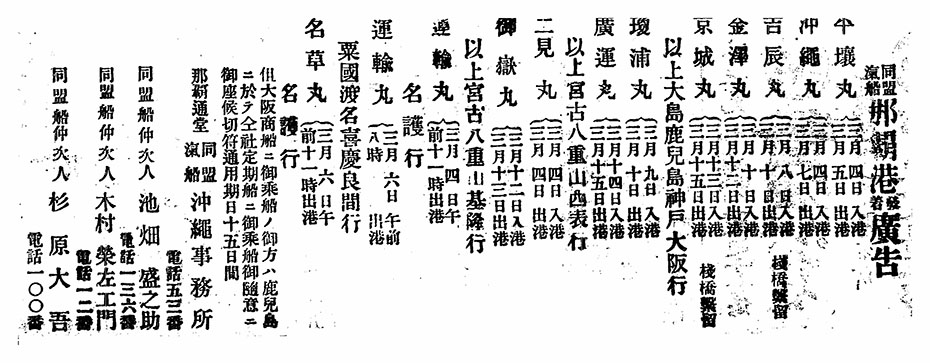 同盟汽船那覇港發着廣告
平壤丸 三月四日入港 三月五日出港
沖繩丸 三月四日入港 三月七日出港
吉辰丸 三月八日入港 三月十日出港 棧橋繫留
金澤丸 三月十日入港
京城丸 三月十五日出港 棧橋繫留
以上大島鹿兒島神戸大阪行
瓊浦丸 三月九日入港 三月十日出港
廣運丸 三月十四日入港 三月十五日出港
以上宮古八重山西表行
二見丸 三月四日出港
御嶽丸 三月十二日入港 三月十三日出港
以上宮古八重山基隆行
運輸丸 三月四日午前十一時出港
名護行
運輸丸 三月六日午前八時出港
粟國渡名喜慶良間行
名草丸 三月六日午前十一時出港
名護行
但大阪商船ニ御乘船ノ御方ハ鹿兒島
ニ於テ仝社定期船ニ御乘船御隨意ニ
御座候切符通用期日十五日間
那覇通堂 同盟汽船 沖繩事務所
電話五三番
同盟船仲次人 池畑盛之助
電話一三六番
同盟船仲次人 木村榮左工門
電話一二番
同盟船仲次人 杉原大吾
電話一〇〇番